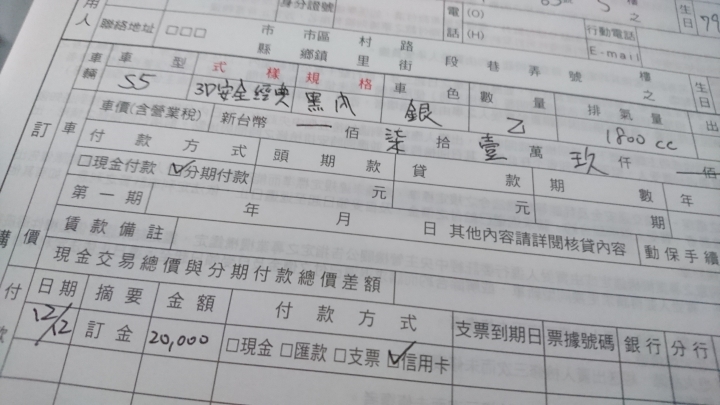 用人
身分證號
電話
(O)
(H)
行動電話
E-mail
生日
79
聯絡地址 □□□ 市 縣 市區 鄉鎮 村 里 路 街 段 巷 弄 號 樓 之
車輛 車型 式樣 規格 車色 數量 排氣量 出
S5 3D安全經典 黑內 銀 乙 1800 cc
訂 車
車價(含營業稅) 新台幣 — 佰 柒 拾 壹 萬 玖 仟 — 佰
付款方式 頭期款 貸款 期數 年
□現金付款 ☑分期付款 元 元 期
第一期 年 月 日 其他內容請詳閱核貸內容 動保手續
購 價
貸款備註
現金交易總價與分期付款總價差額
付款
日期 摘要 金額 付款方式 支票到期日 票據號碼 銀行 分行
12/12 訂金 20,000 □現金 □匯款 □支票 ☑信用卡